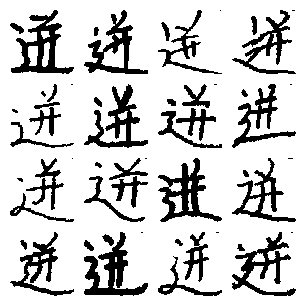 迸迸迸迸
迸迸迸迸
迸迸迸迸
迸迸迸迸